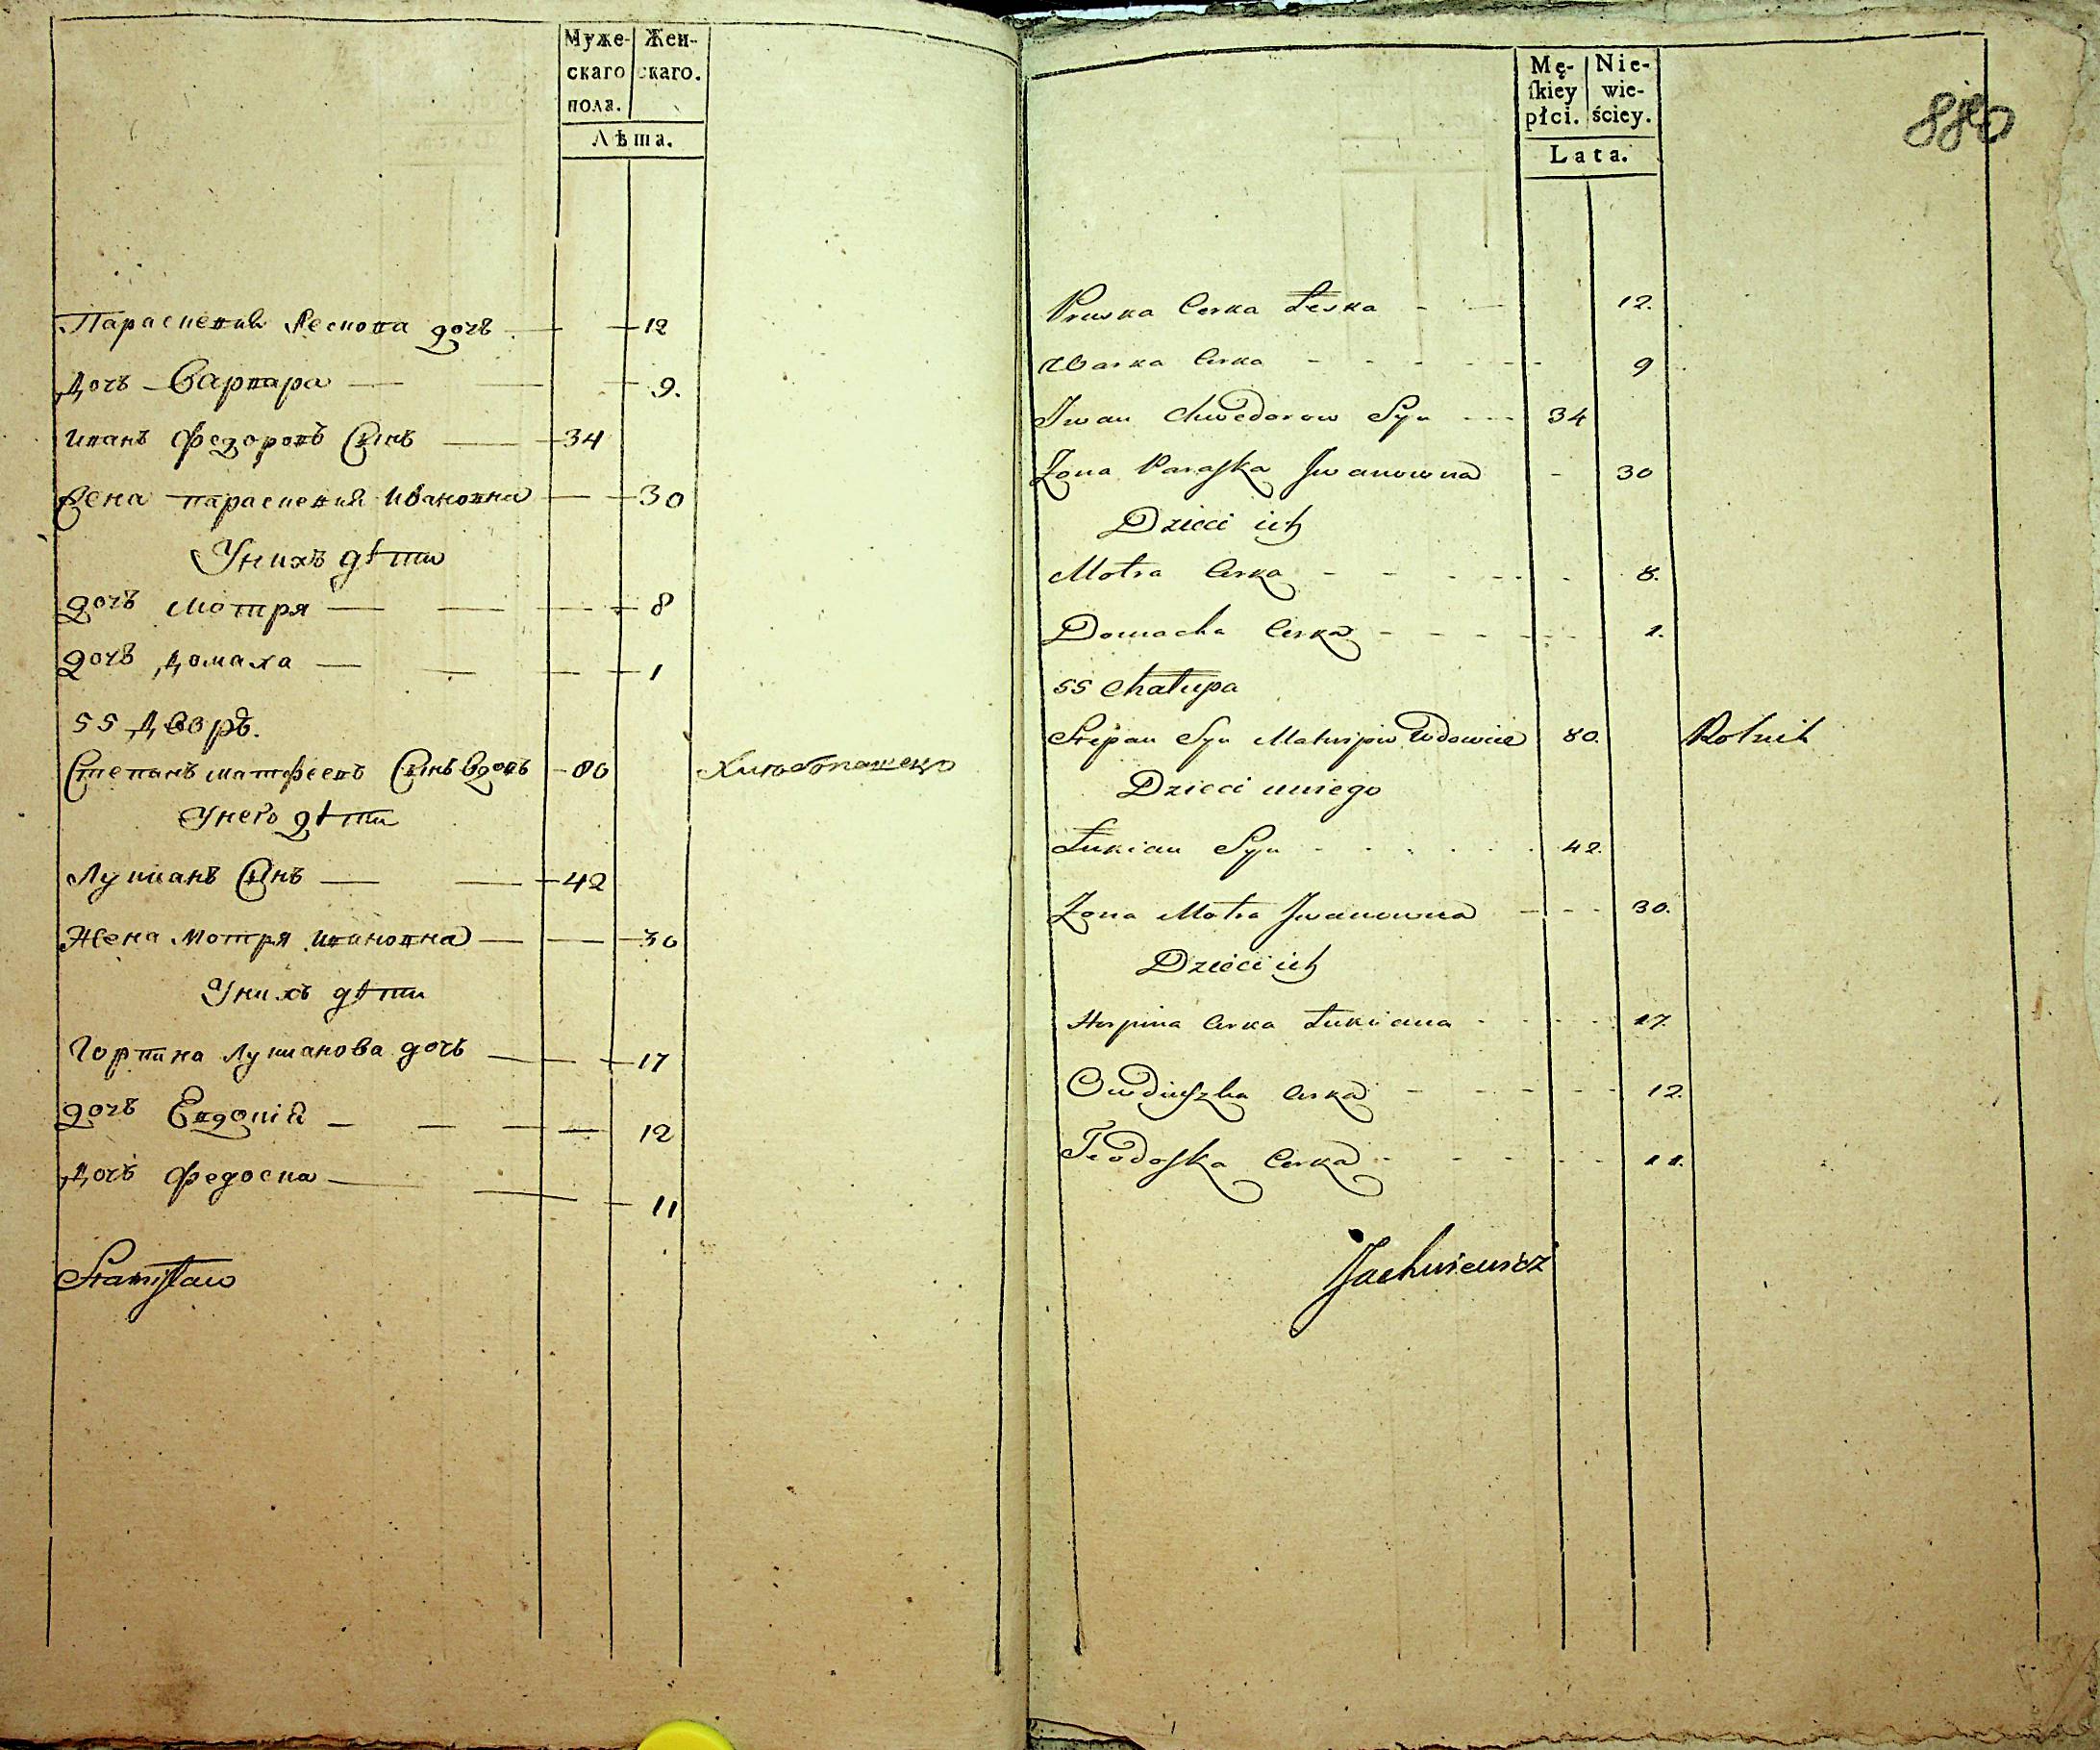 Муже- Жен-
скаго скаго.
пола.
Лѣта.
Параскевия Лескова дочь — — 12
Дочь Варвара — — — 9.
Иванъ Федоровъ Сынъ — 34
Жена Параскевия Ивановна — — 30
У нихъ дѣти
дочь Мотря — — — 8
дочь Домаха — — — 1
55 Дворъ.
Степанъ Матфеевъ Сынъ вдовъ - 80 Хлѣбопашецъ
У него дѣти
Лукианъ Сынъ — — 42
Жена Мотря Ивановна — — 30
У нихъ дѣти
Горпина Лукианова дочь — — 17
дочь Евдокія — — — 12
Дочь Федоска — — — 11
Stanisław
Mę- Nie-
ſkiey wie-
płci. ściey.
Lata.
880
Pruska Corka Leska - - 12.
Warka Corka - - - - 9
Iwan Chwedorow Syn - - - 34
Zona Paraſka Iwanowna - 30
Dzieci ich
Motra Corka - - - - 8.
Domacha Corka - - - - 1.
55 Chałupa
Stepan Syn Matwijow Wdowiec 80. Rolnik
Dzieci u niego
Łukian Syn - - - - 42.
Zona Motra Iwanowna - - - 30.
Dzieci ich
Horpina Corka Łukiana - - - 17.
Owdiuſzka Corka - - - - 12.
Teodoſka Corka - - - - 11.
Jachniewicz